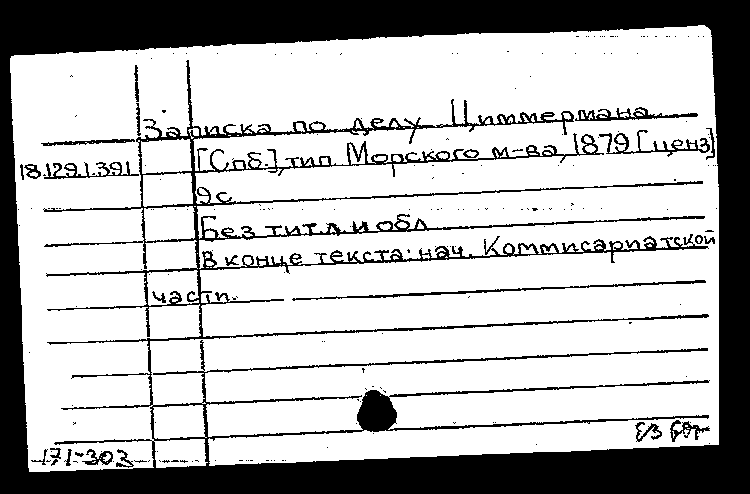 Записка по делу Циммермана
18.129.1.391 [Спб.], тип Морского м-ва, 1879 [ценз]
9с
Без тит.л и обл
В конце текста: нач. Коммисариатской
части.
171-303